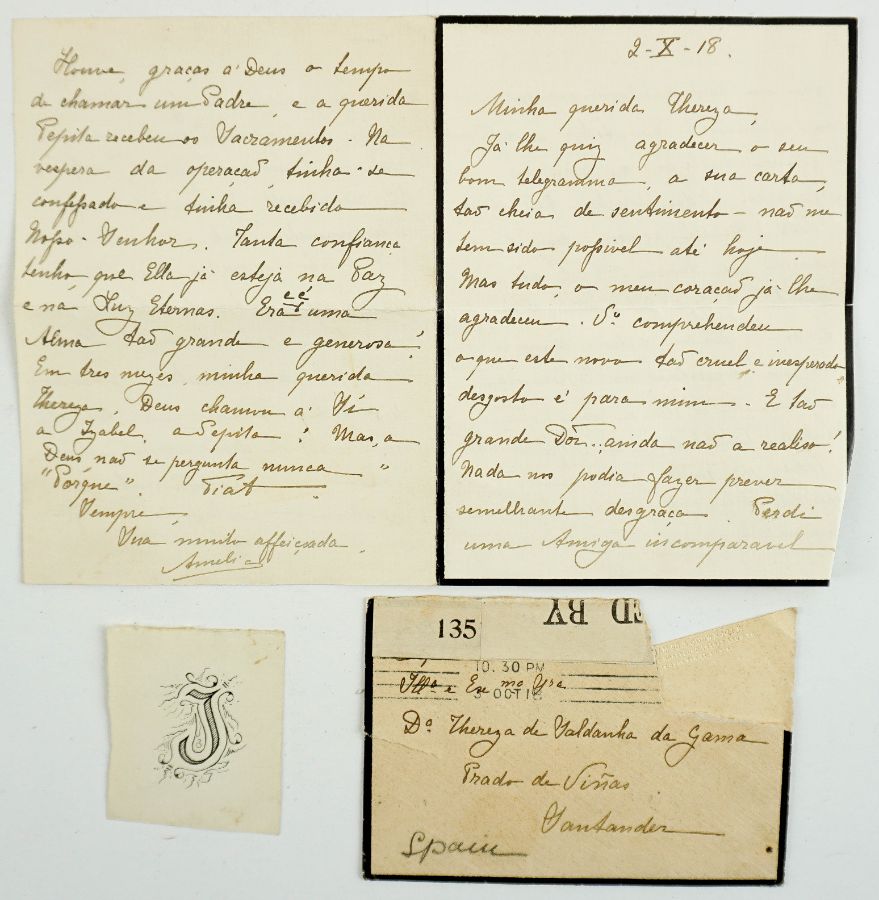 2-X-18.
Minha querida Thereza,
Já lhe quiz agradecer o seu
bom telegramma, a sua carta,
taõ cheia de sentimento - naõ me
tem sido possivel até hoje
Mas tudo, o meu coraçaõ já lhe
agradeceu. Só comprehendeu
o que este novo taõ cruel e inesperado
desgosto é para mim. E taõ
grande Dôr... ainda naõ a realiso!
Nada nos podia fazer prever
semelhante desgraça. Perdi
uma Amiga incomparavel
Houve, graças a Deus o tempo
de chamar um Padre, e a querida
Pepita recebeu os Sacramentos. Na
vespera da operaçaõ, tinha-se
confessado e tinha recebido
Nosso-Senhor. Tanta confiança
tenho que Ella já esteja na Paz
e na Luz Eternas. Era uma
Alma taõ grande e generosa!
Em tres mezes, minha querida
Thereza, Deus chamou a Si
a Izabel, a Pepita! Mas, a
Deus naõ se pergunta nunca
"Porque". Fiat
Sempre
Sua muito affeiçoada
Amelia
J
135
ED BY
10.30 PM
3 OCT 18
Illª e Exmª Sra
Dª Thereza de Saldanha da Gama
Prado de Viñas
Santander
Spain